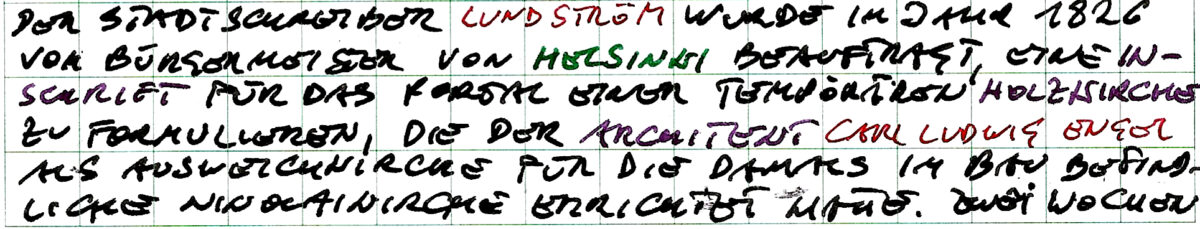 DER STADTSCHREIBER LUNDSTRÖM WURDE IM JAHR 1826
VOM BÜRGERMEISTER VON HELSINKI BEAUFTRAGT, EINE IN-
SCHRIFT FÜR DAS PORTAL EINER TEMPORÄREN HOLZKIRCHE
ZU FORMULIEREN, DIE DER ARCHITEKT CARL LUDWIG ENGEL
ALS AUSWEICHKIRCHE FÜR DIE DAMALS IM BAU BEFIND-
LICHE NIKOLAIKIRCHE ERRICHTET HATTE. ZWEI WOCHEN